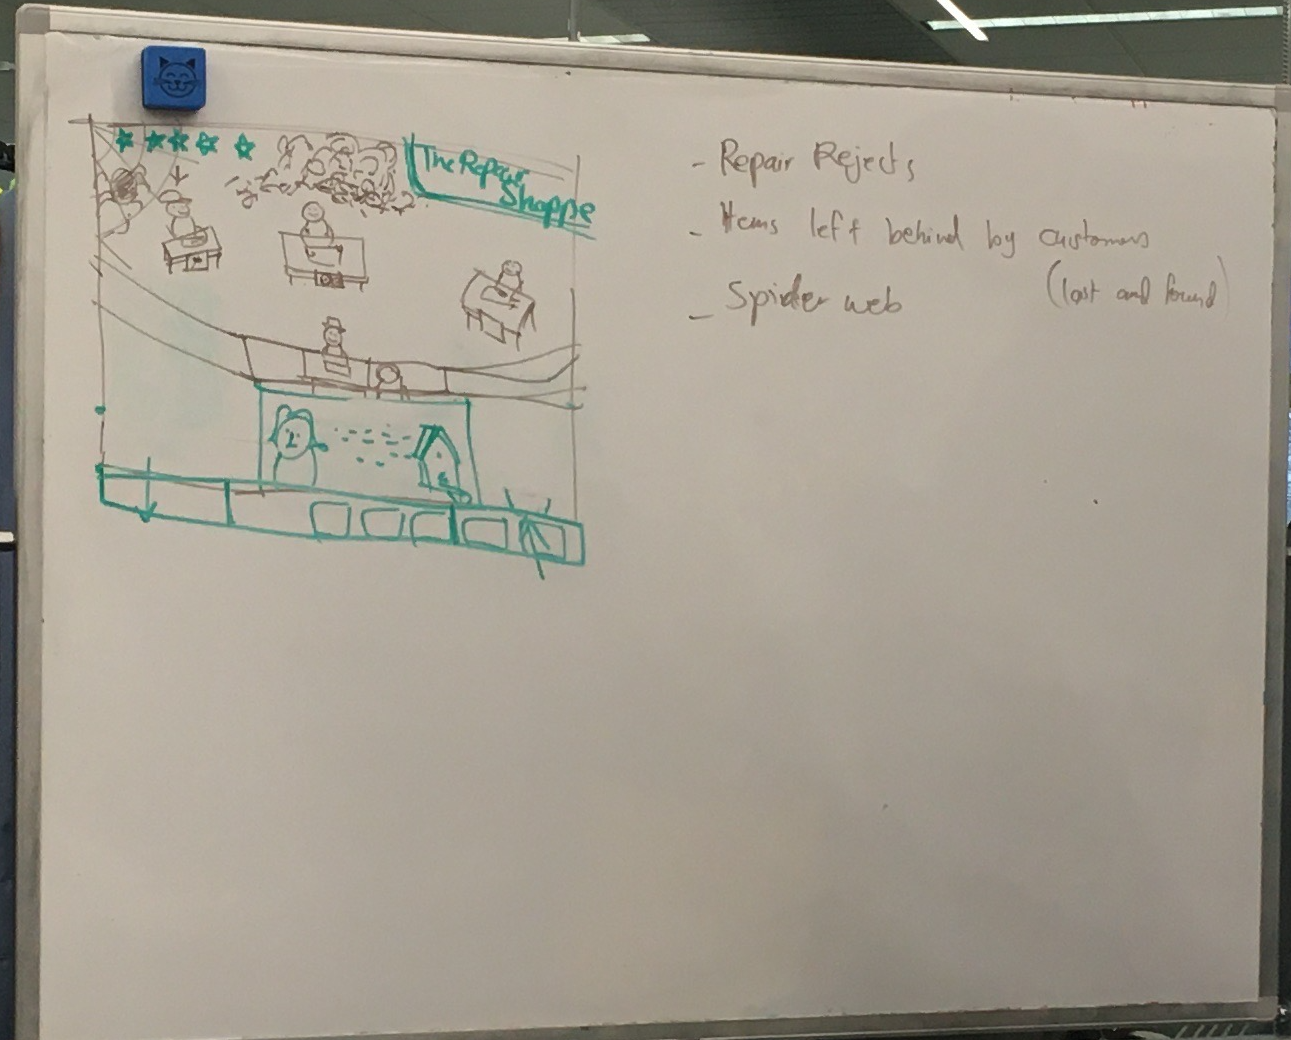 The Repair
Shoppe
- Repair Rejects
- Items left behind by customers
(lost and found)
- Spider web